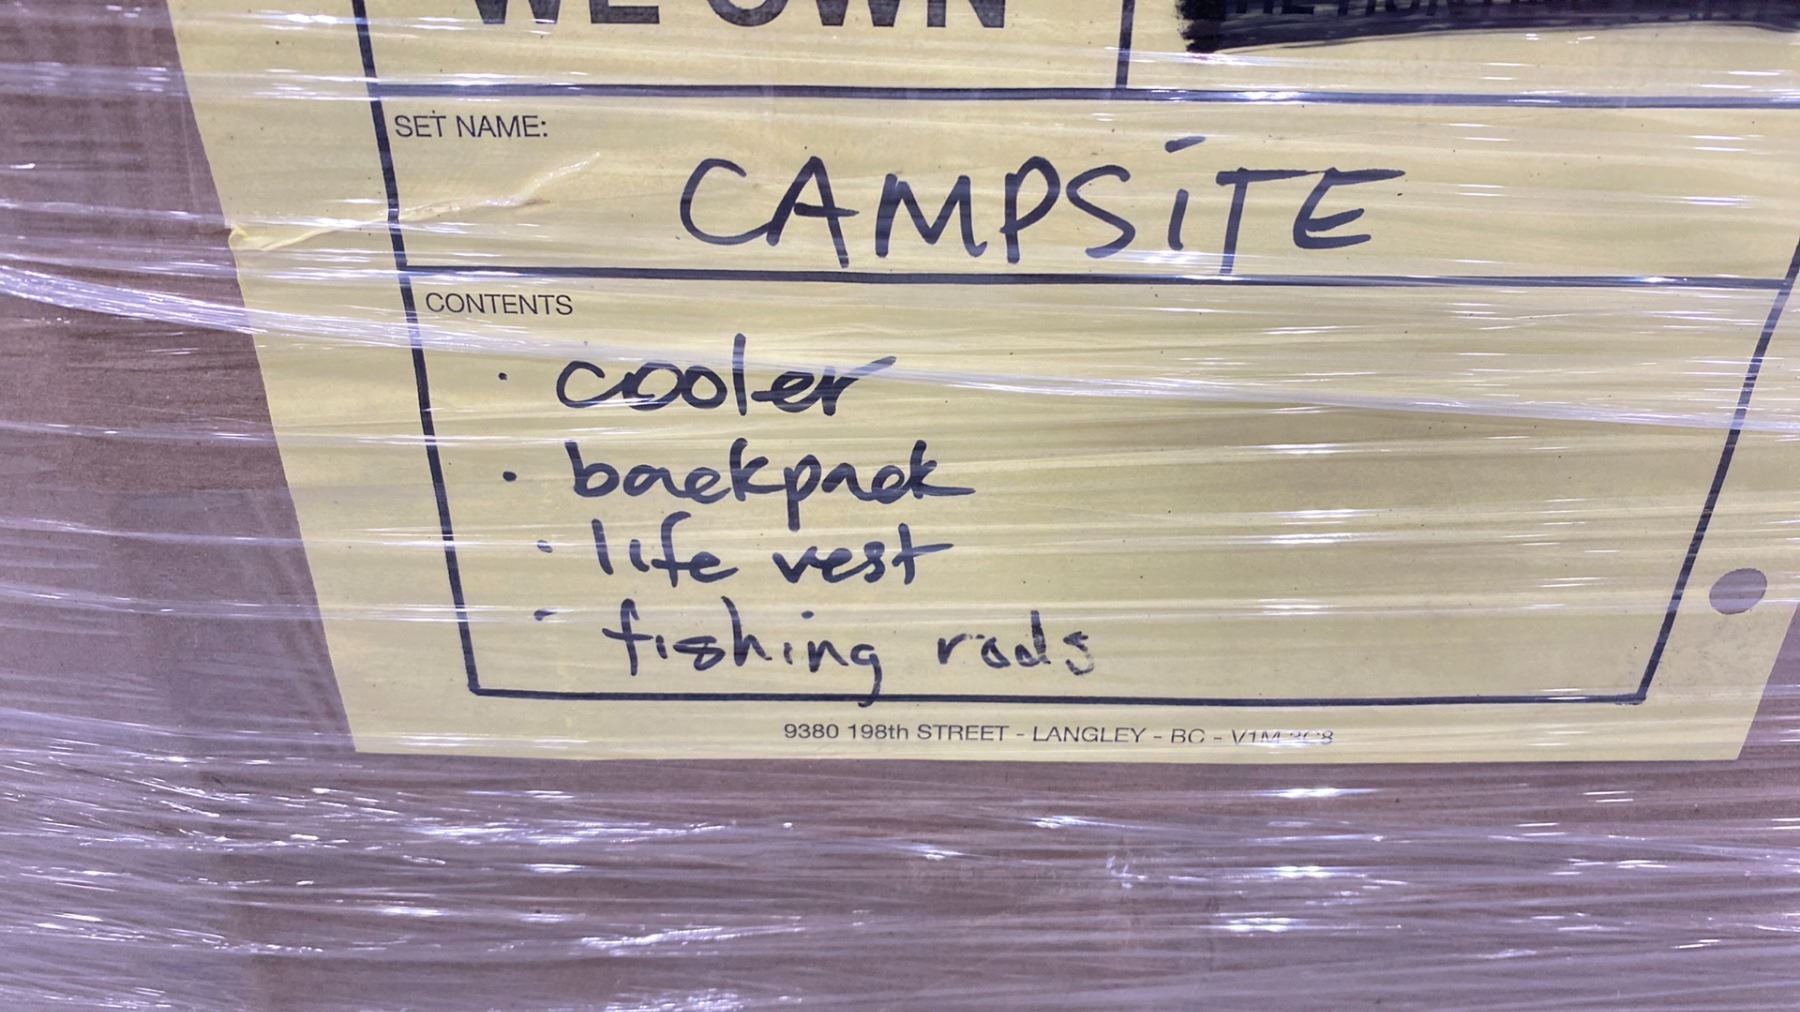 WE OWN
SET NAME:
CAMPSiTE
CONTENTS
· cooler
· backpack
· life vest
· fishing rods
9380 198th STREET - LANGLEY - BC - V1M 3C8